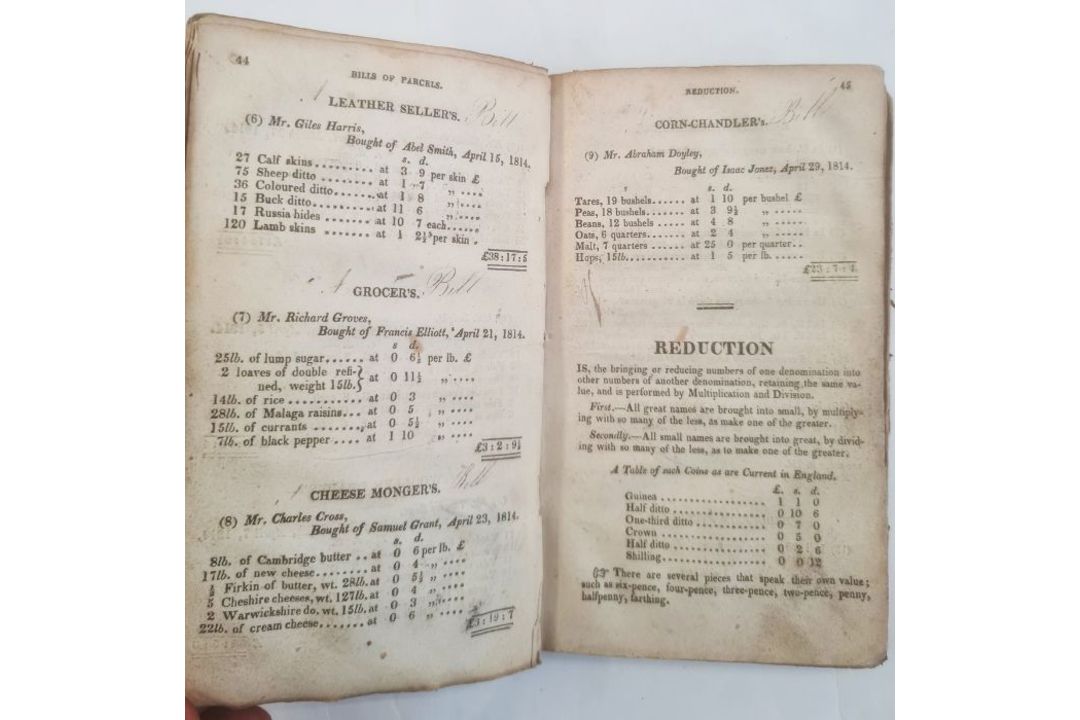 44
BILLS OF PARCELS.
LEATHER SELLER'S. Bill
(6) Mr. Giles Harris,
Bought of Abel Smith, April 15, 1814.
s. d.
27 Calf skins ......... at 3 9 per skin £
75 Sheep ditto ........ at 1 7 „ ....
36 Coloured ditto....... at 1 8 „ ....
15 Buck ditto........... at 11 6 „ ....
17 Russia hides ........ at 10 7 each......
120 Lamb skins ........ at 1 2½ per skin .
£38:17:5
GROCER'S. Bill
(7) Mr. Richard Groves,
Bought of Francis Elliott, April 21, 1814.
s d.
25lb. of lump sugar...... at 0 6½ per lb. £
2 loaves of double refi-
ned, weight 15lb. } at 0 11½ „ ....
14lb. of rice ........... at 0 3 „ ....
28lb. of Malaga raisins... at 0 5 „ ....
15lb. of currants ........ at 0 5½ „ ....
7lb. of black pepper .... at 1 10 „ ....
£3:2:9½
CHEESE MONGER'S. Bill
(8) Mr. Charles Cross,
Bought of Samuel Grant, April 23, 1814.
s. d.
8lb. of Cambridge butter .. at 0 6 per lb. £
17lb. of new cheese........ at 0 4 „ ....
½ Firkin of butter, wt. 28lb. at 0 5½ „ ....
5 Cheshire cheeses, wt. 127lb. at 0 4 „ ....
2 Warwickshire do. wt. 15lb. at 0 3 „ ....
22lb. of cream cheese....... at 0 6 „ ....
£3:19:7
45
REDUCTION.
CORN-CHANDLER's. Bill
(9) Mr. Abraham Doyley,
Bought of Isaac Jones, April 29, 1814.
s. d.
Tares, 19 bushels...... at 1 10 per bushel £
Peas, 18 bushels....... at 3 9½ „ .....
Beans, 12 bushels ..... at 4 8 „ .....
Oats, 6 quarters....... at 2 4 „ .....
Malt, 7 quarters ...... at 25 0 per quarter..
Hops, 15lb............ at 1 5 per lb. ......
£23:7:4.
REDUCTION
IS, the bringing or reducing numbers of one denomination into
other numbers of another denomination, retaining the same va-
lue, and is performed by Multiplication and Division.
First.—All great names are brought into small, by multiply-
ing with so many of the less, as make one of the greater.
Secondly.—All small names are brought into great, by divid-
ing with so many of the less, as to make one of the greater.
A Table of such Coins as are Current in England.
£. s. d.
Guinea .................. 1 1 0
Half ditto ............... 0 10 6
One-third ditto ........... 0 7 0
Crown .................. 0 5 0
Half ditto ............... 0 2 6
Shilling.................. 0 0 12
☞ There are several pieces that speak their own value;
such as six-pence, four-pence, three-pence, two-pence, penny,
halfpenny, farthing.